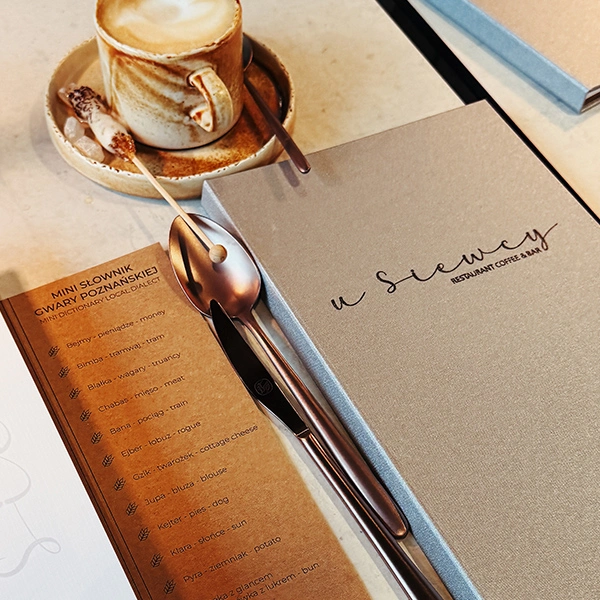 u Siewcy
RESTAURANT COFFEE & BAR
MINI SŁOWNIK
GWARY POZNAŃSKIEJ
MINI DICTIONARY LOCAL DIALECT
Bejmy - pieniądze - money
Bimba - tramwaj - tram
Blałka - wagary - truancy
Chabas - mięso - meat
Bana - pociąg - train
Ejber - łobuz - rogue
Gzik - twarożek - cottage cheese
Jupa - bluza - blouse
Kejter - pies - dog
Klara - słońce - sun
Pyra - ziemniak - potato
z glancem
z lukrem - bun